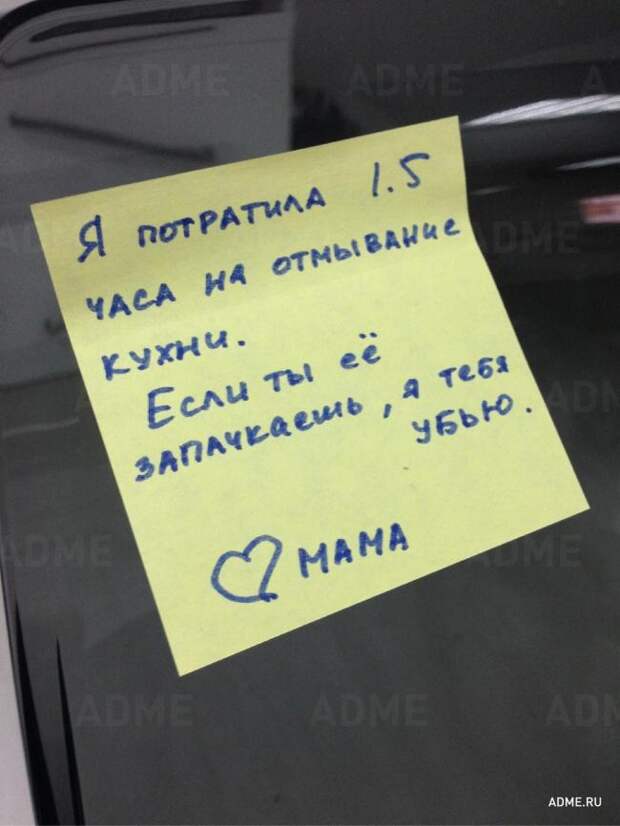 ADME ADME A
Я ПОТРАТИЛА 1.5
ЧАСА НА ОТМЫВАНИЕ
КУХНИ.
ЕСЛИ ТЫ ЕЁ
ЗАПАЧКАЕШЬ, Я ТЕБЯ
УБЬЮ.
♡ МАМА
ADME ADME AD
ADME.RU